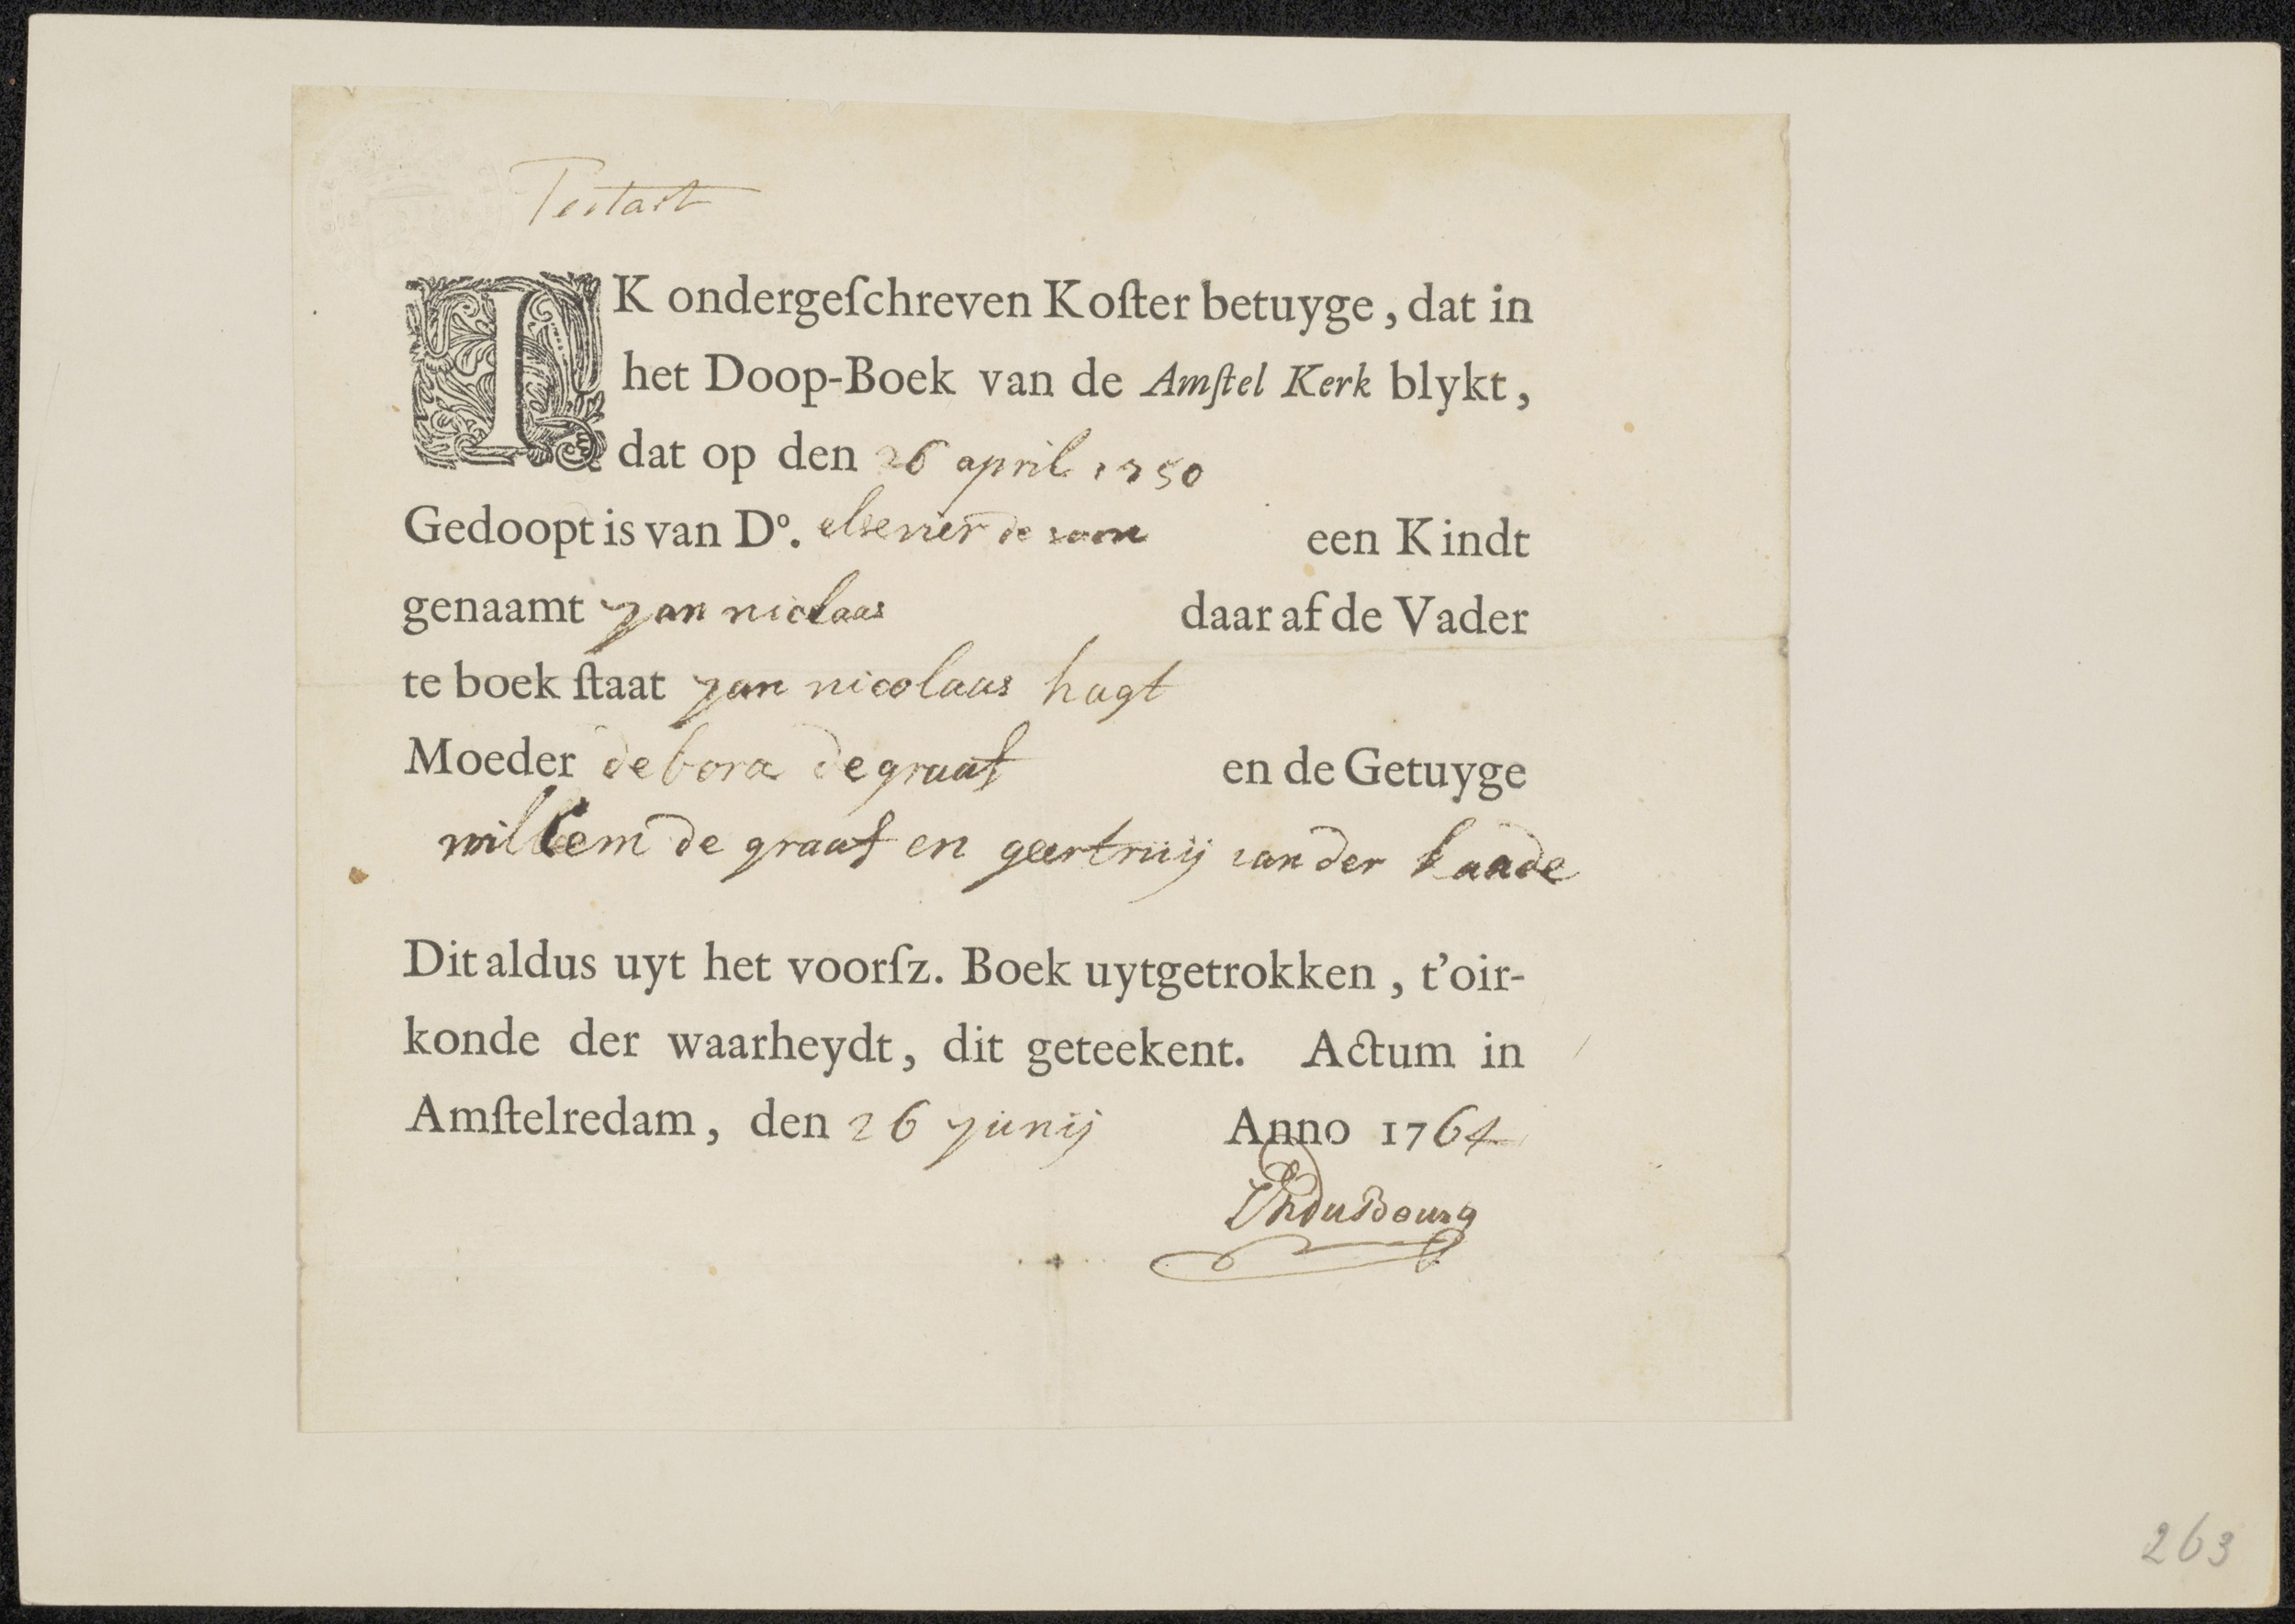 Testart
IK ondergeſchreven Koſter betuyge, dat in
het Doop-Boek van de Amſtel Kerk blykt,
dat op den 26 april 1750
Gedoopt is van Dº. elsevier de een Kindt
genaamt jan niclaas daar af de Vader
te boek ſtaat jan nicolaas hagt
Moeder debora de graaf en de Getuyge
willem de graaf en geertruij van der kaade
Dit aldus uyt het voorſz. Boek uytgetrokken, t'oir-
konde der waarheydt, dit geteekent. Actum in
Amſtelredam, den 26 junij Anno 1764
duBourg
263